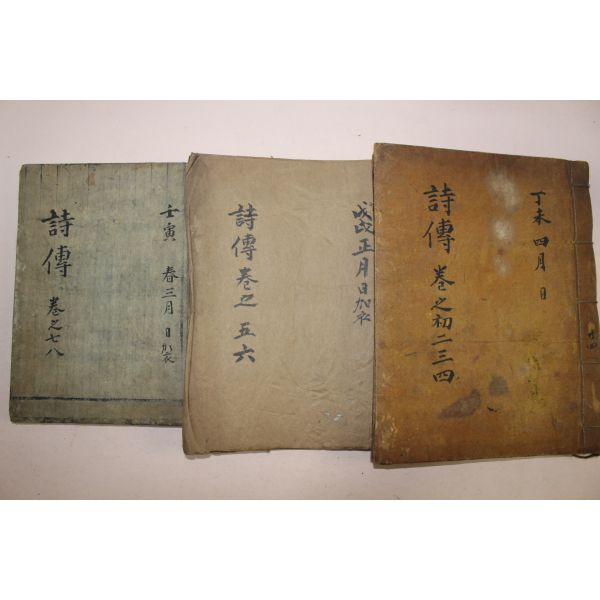 丁未 四月 日
詩傳 卷之初二三四
正月日加衣
詩傳卷之五六
壬寅 春三月 日加衣
詩傳 卷之七八